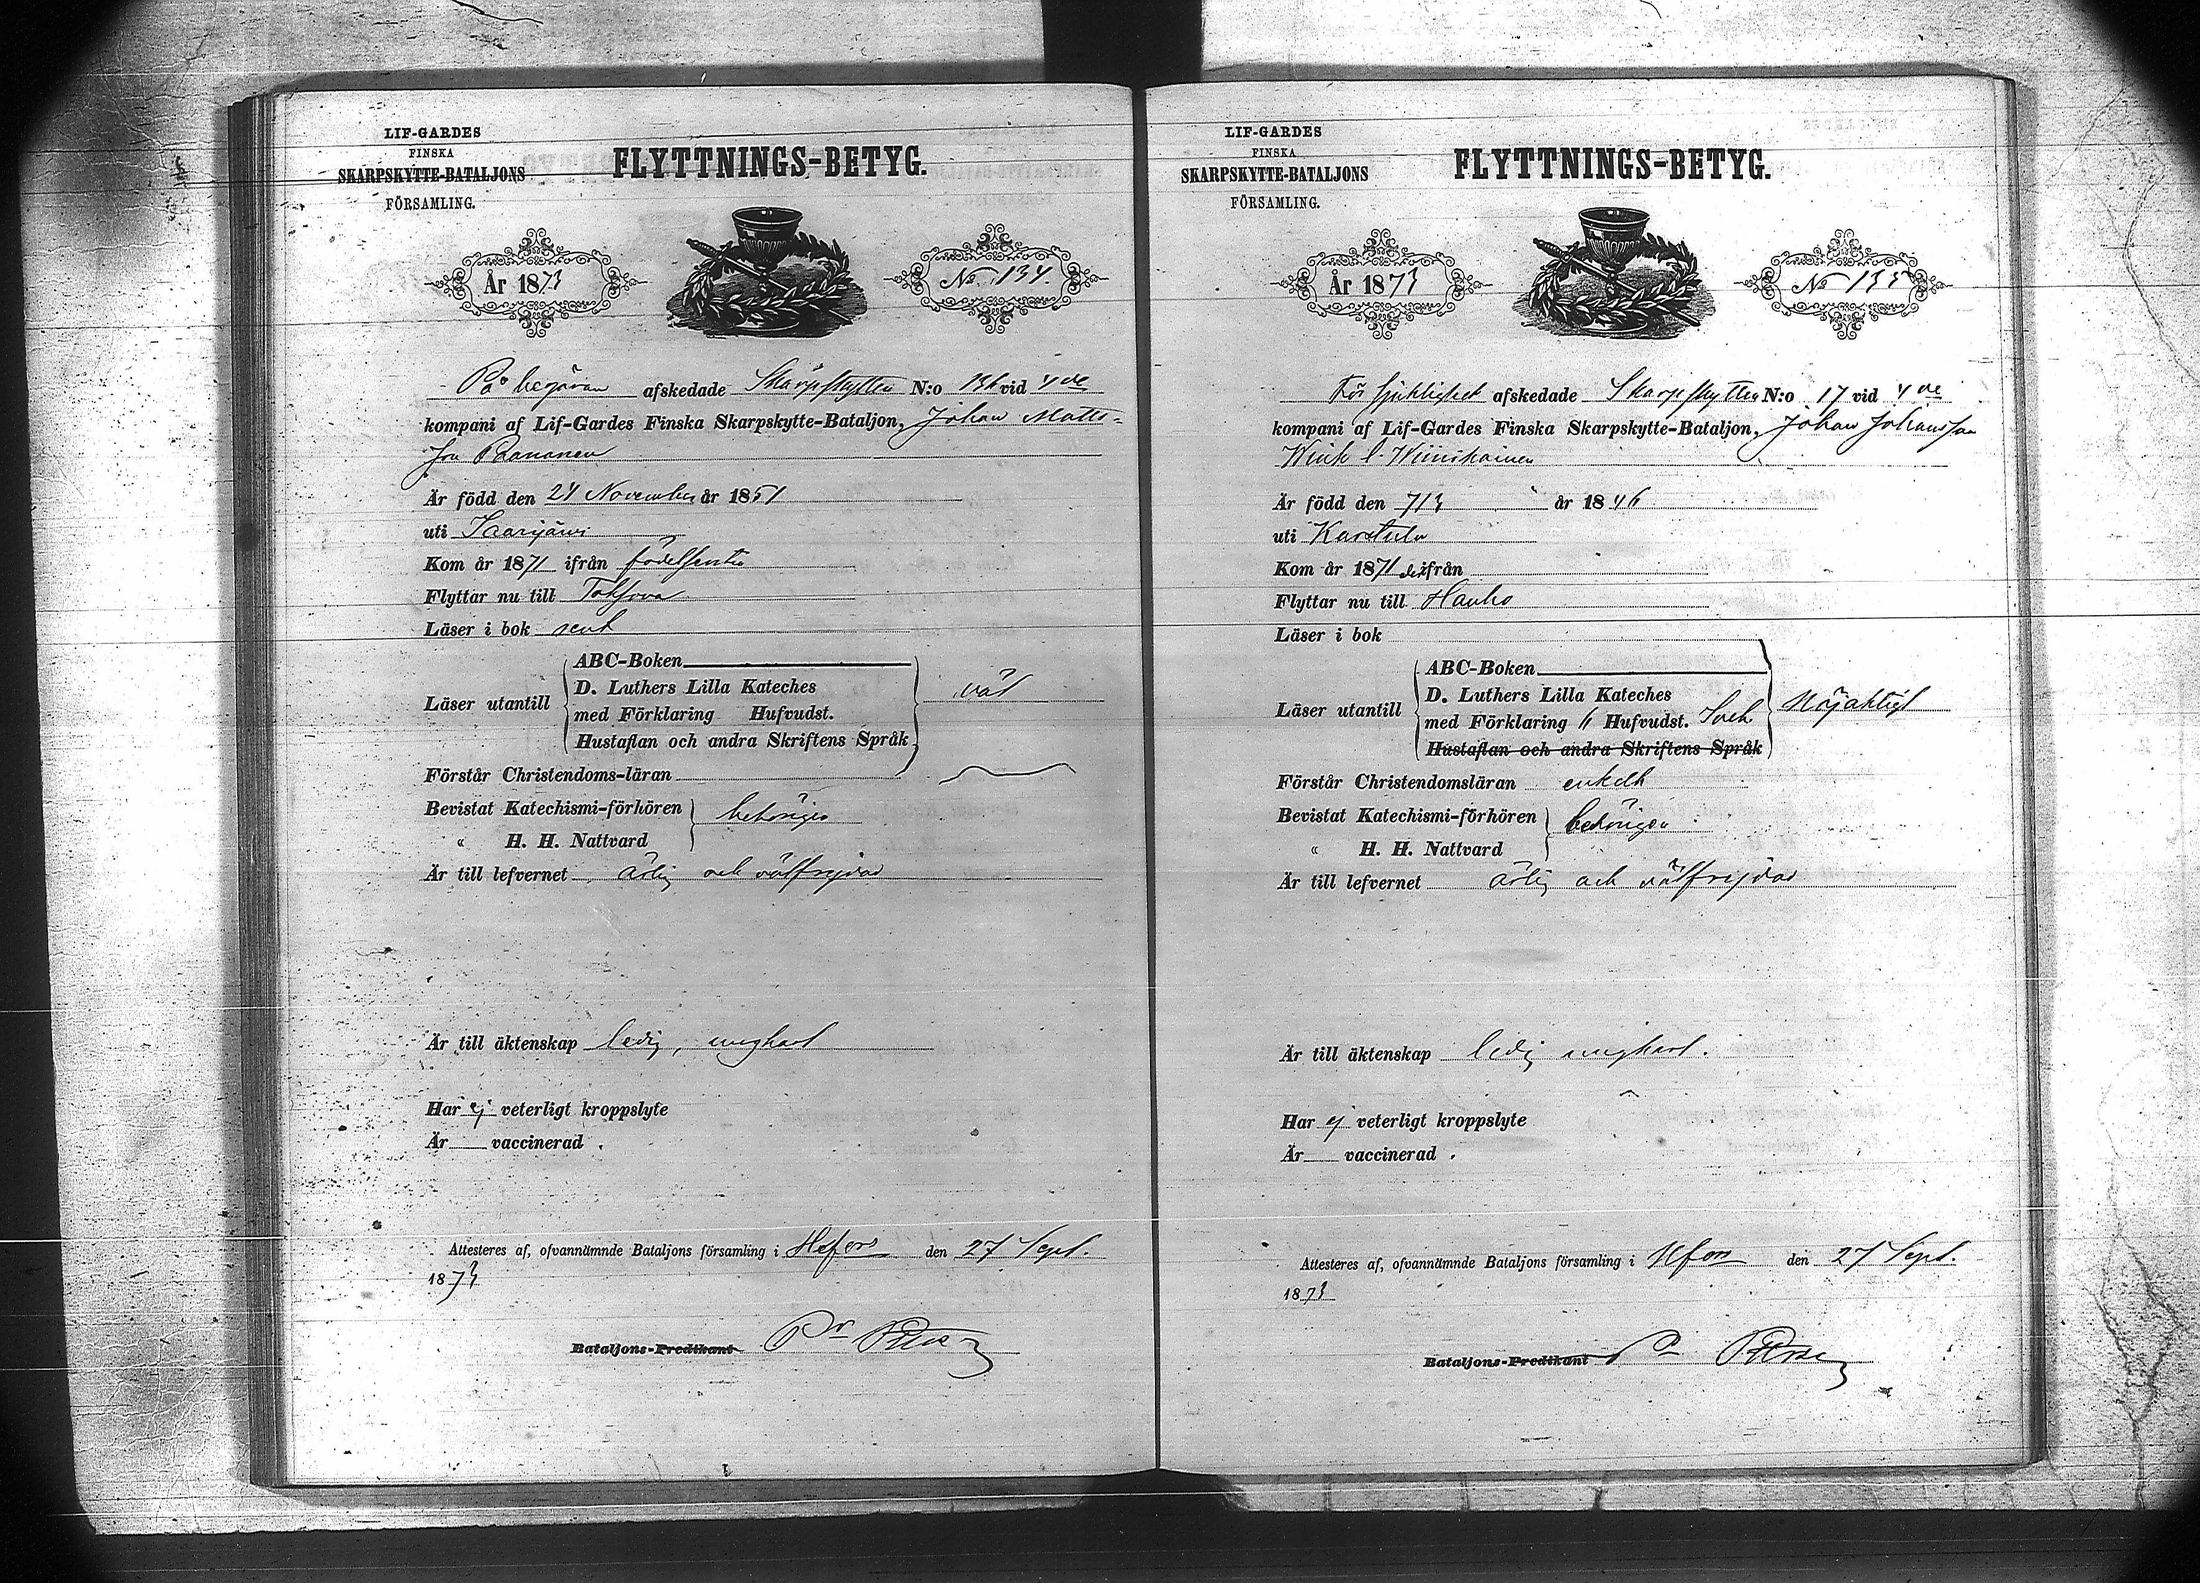 LIF-GARDES
FINSKA
SKARPSKYTTE-BATALJONS
FÖRSAMLING.
FLYTTNINGS-BETYG.
År 1873
No 134.
På begäran afskedade Skarpskytten N:o 136 vid 4de
kompani af Lif-Gardes Finska Skarpskytte-Bataljon, Johan Matts-
son Paananen
Är född den 24 November år 1851
uti Saarijärvi
Kom år 1871 ifrån födelseorten
Flyttar nu till
Läser i bok rent
Läser utantill
ABC-Boken
D. Luthers Lilla Kateches
med Förklaring Hufvudst.
Hustaflan och andra Skriftens Språk
Förstår Christendoms-läran
Bevistat Katechismi-förhören
" H. H. Nattvard
behörigen
Är till lefvernet ärlig och välfrejdad
Är till äktenskap ledig, ungkarl
Har ej veterligt kroppslyte
Är vaccinerad.
Attesteres af, ofvannämnde Bataljons församling i H:fors den 27 Sept.
1873
Bataljons-Predikant
LIF-GARDES
FINSKA
SKARPSKYTTE-BATALJONS
FÖRSAMLING.
FLYTTNINGS-BETYG.
År 1873
No 135
För sjuklighet afskedade Skarpskytten N:o 17 vid 4de
kompani af Lif-Gardes Finska Skarpskytte-Bataljon, Johan Johansson
Wink l. Wiinikainen
Är född den 7/3 år 1846
uti Karstula
Kom år 1871 derifrån
Flyttar nu till Hauho
Läser i bok
Läser utantill
ABC-Boken
D. Luthers Lilla Kateches
med Förklaring Hufvudst.
Hustaflan och andra Skriftens Språk
Nöjaktigt
Förstår Christendomsläran enkelt
Bevistat Katechismi-förhören
" H. H. Nattvard
behörigen
Är till lefvernet ärlig och välfrejdad
Är till äktenskap ledig ungkarl.
Har ej veterligt kroppslyte
Är vaccinerad.
Attesteres af, ofvannämnde Bataljons församling i H:fors den 27 Sept.
1873
Bataljons-Predikant